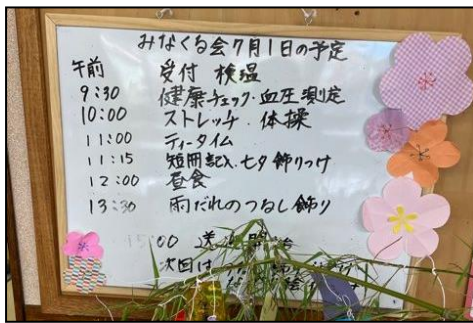 みなくる会7月1日の予定
午前 受付 検温
9:30 健康チェック・血圧測定
10:00 ストレッチ・体操
11:00 ティータイム
11:15 短冊記入、七夕飾りつけ
12:00 昼食
13:30 雨だれのつるし飾り
:00 送
次回は